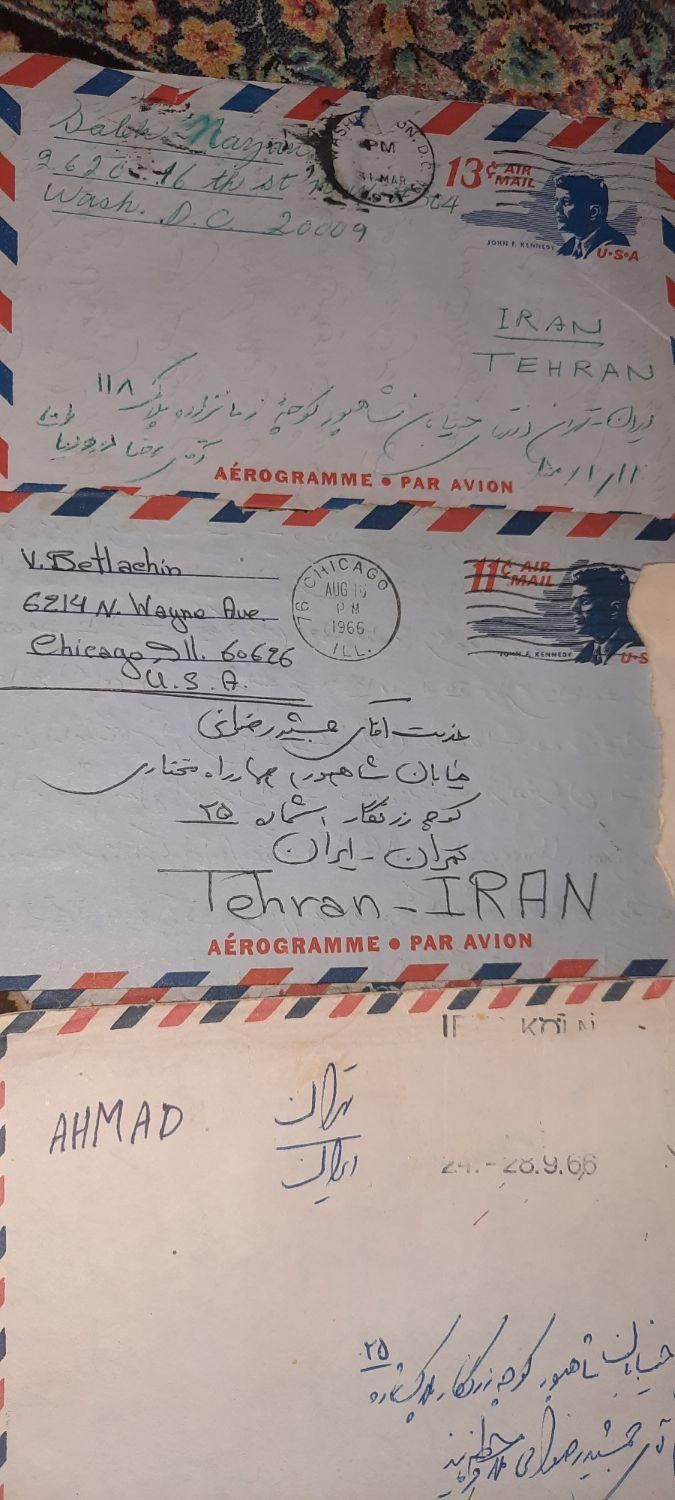 Saleh
2620 16 th st
Wash. D.C. 20009
PM
31 MAR
1971
13¢ AIR MAIL
JOHN F. KENNEDY
U·S·A
IRAN
TEHRAN
ایران - تهران انتهای خیابان شاهپور کوچهٔ پلاک ۱۱۸
آقای رضا
AÉROGRAMME • PAR AVION
V. Betlachin
6214 N. Wayne Ave.
Chicago Ill. 60626
U.S.A.
CHICAGO ILL.
AUG
PM
1966
11¢ AIR MAIL
JOHN F. KENNEDY
U·S
خدمت آقای جمشید رضوانی
خیابان شاهپور چهارراه مختاری
کوچه زرنگار شماره ۲۵
تهران - ایران
Tehran - IRAN
AÉROGRAMME • PAR AVION
KÖLN
AHMAD
تهران
ایران
28.9.66
خیابان شاهپور کوچه زرنگار ۲۵
جمشید رضوانی